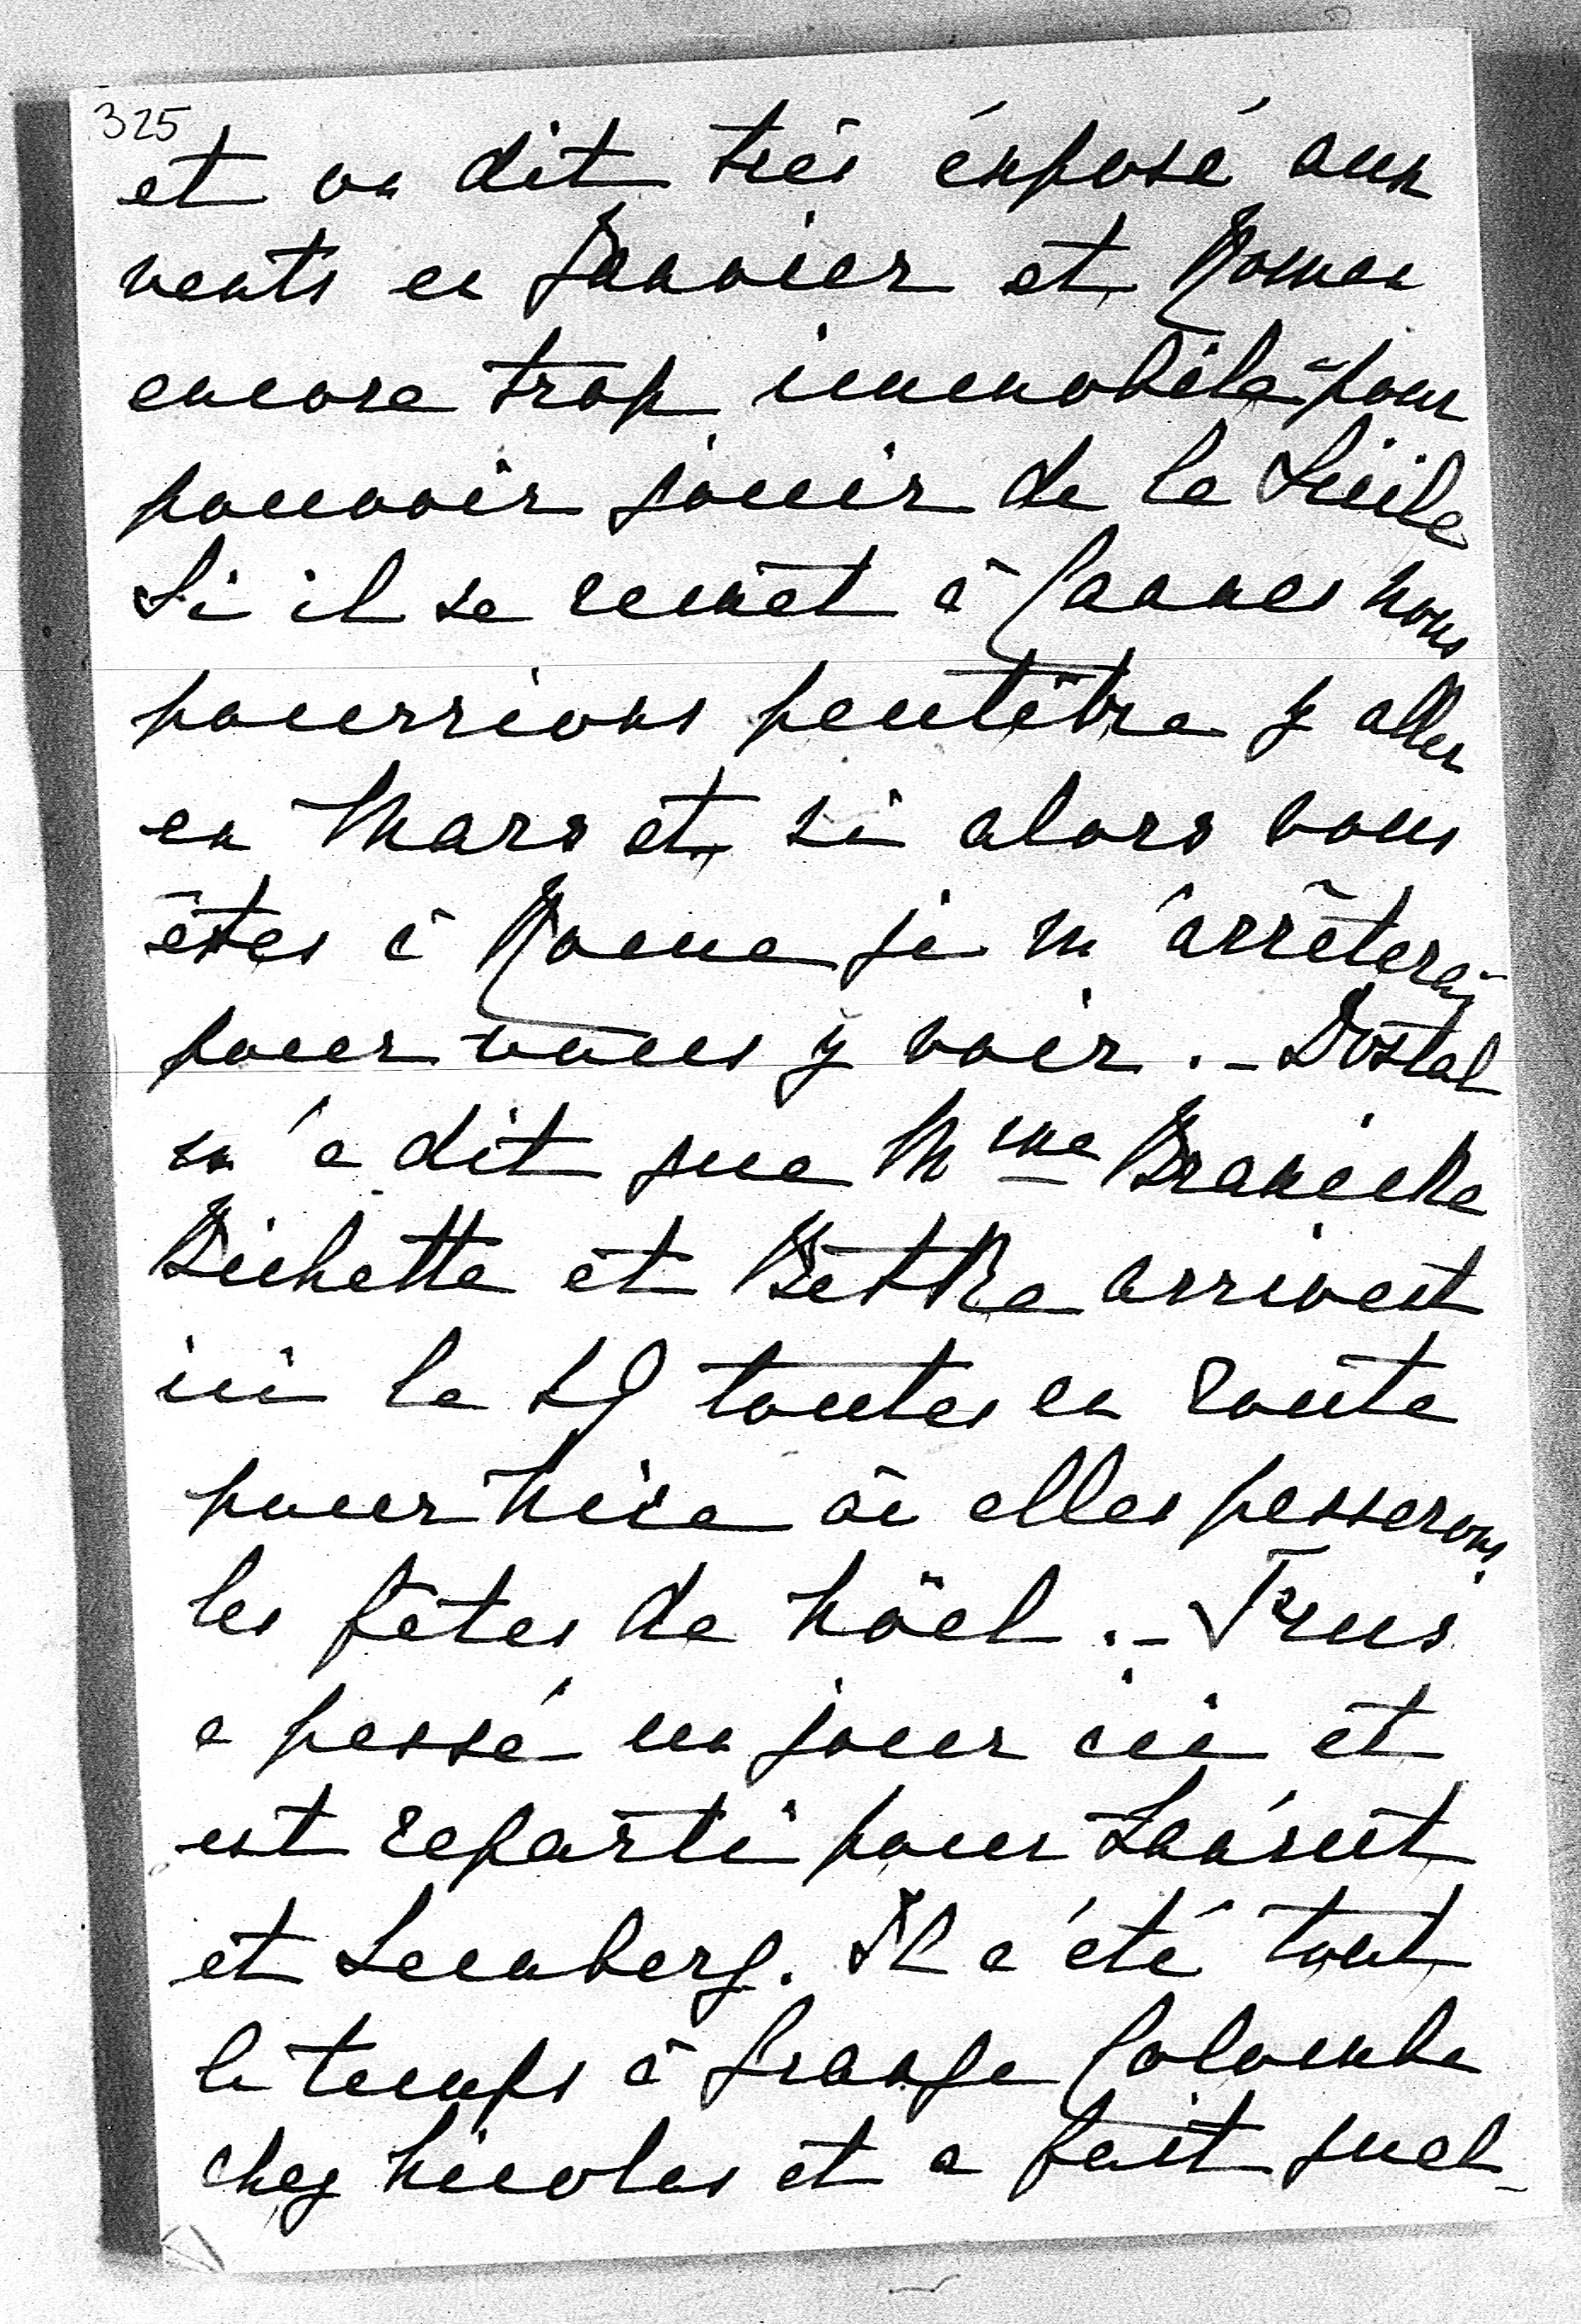 325
et on dit très éxposé aux
vents en Janvier et Roman
encore trop immobile pour
pouvoir jouir de la Sicile
Si il se remet à Cannes nous
pourrions peutêtre y aller
en Mars et si alors vous
êtes à Rome je m'arrêterai
pour vous y voir . _ Dostal
m'a dit que Mme Branicka
Bichette et Betka arrivent
ici le 19 toutes en route
pour Nice où elles passerons
les fêtes de Nöel . _
a passé un jour ici et
est reparti pour Łańcut
et Lemberg. Il a été tout
le temps à Grange Colombe
chez Nicolas et a fait quel-